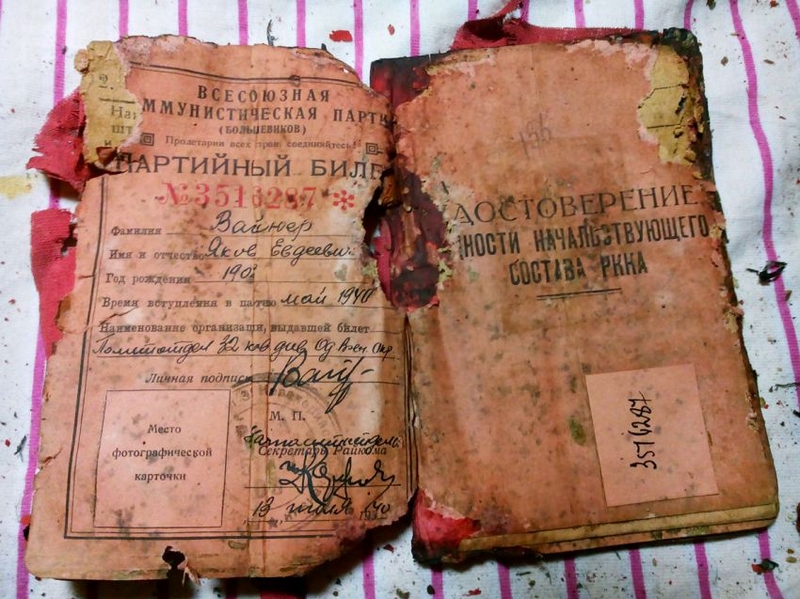 2.
На
шт
и
ВСЕСОЮЗНАЯ
ММУНИСТИЧЕСКАЯ ПАРТИ
(БОЛЬШЕВИКОВ)
Пролетарии всех стран, соединяйтесь!
ПАРТИЙНЫЙ БИЛЕ
№3516287 *
Фамилия Вайнер
Имя и отчество Яков Евдеевич
Год рождения 190
Время вступления в партию май 1940
Наименование организации, выдавшей билет
Политотдел 32 кав див Од Воен Окр
Личная подпись
М. П.
Место
фотографической
карточки
Начполитотдела
Секретарь Райкома
13 июля 40
156
ДОСТОВЕРЕНИЕ
НОСТИ НАЧАЛЬСТВУЮЩЕГО
СОСТАВА РККА
3516287